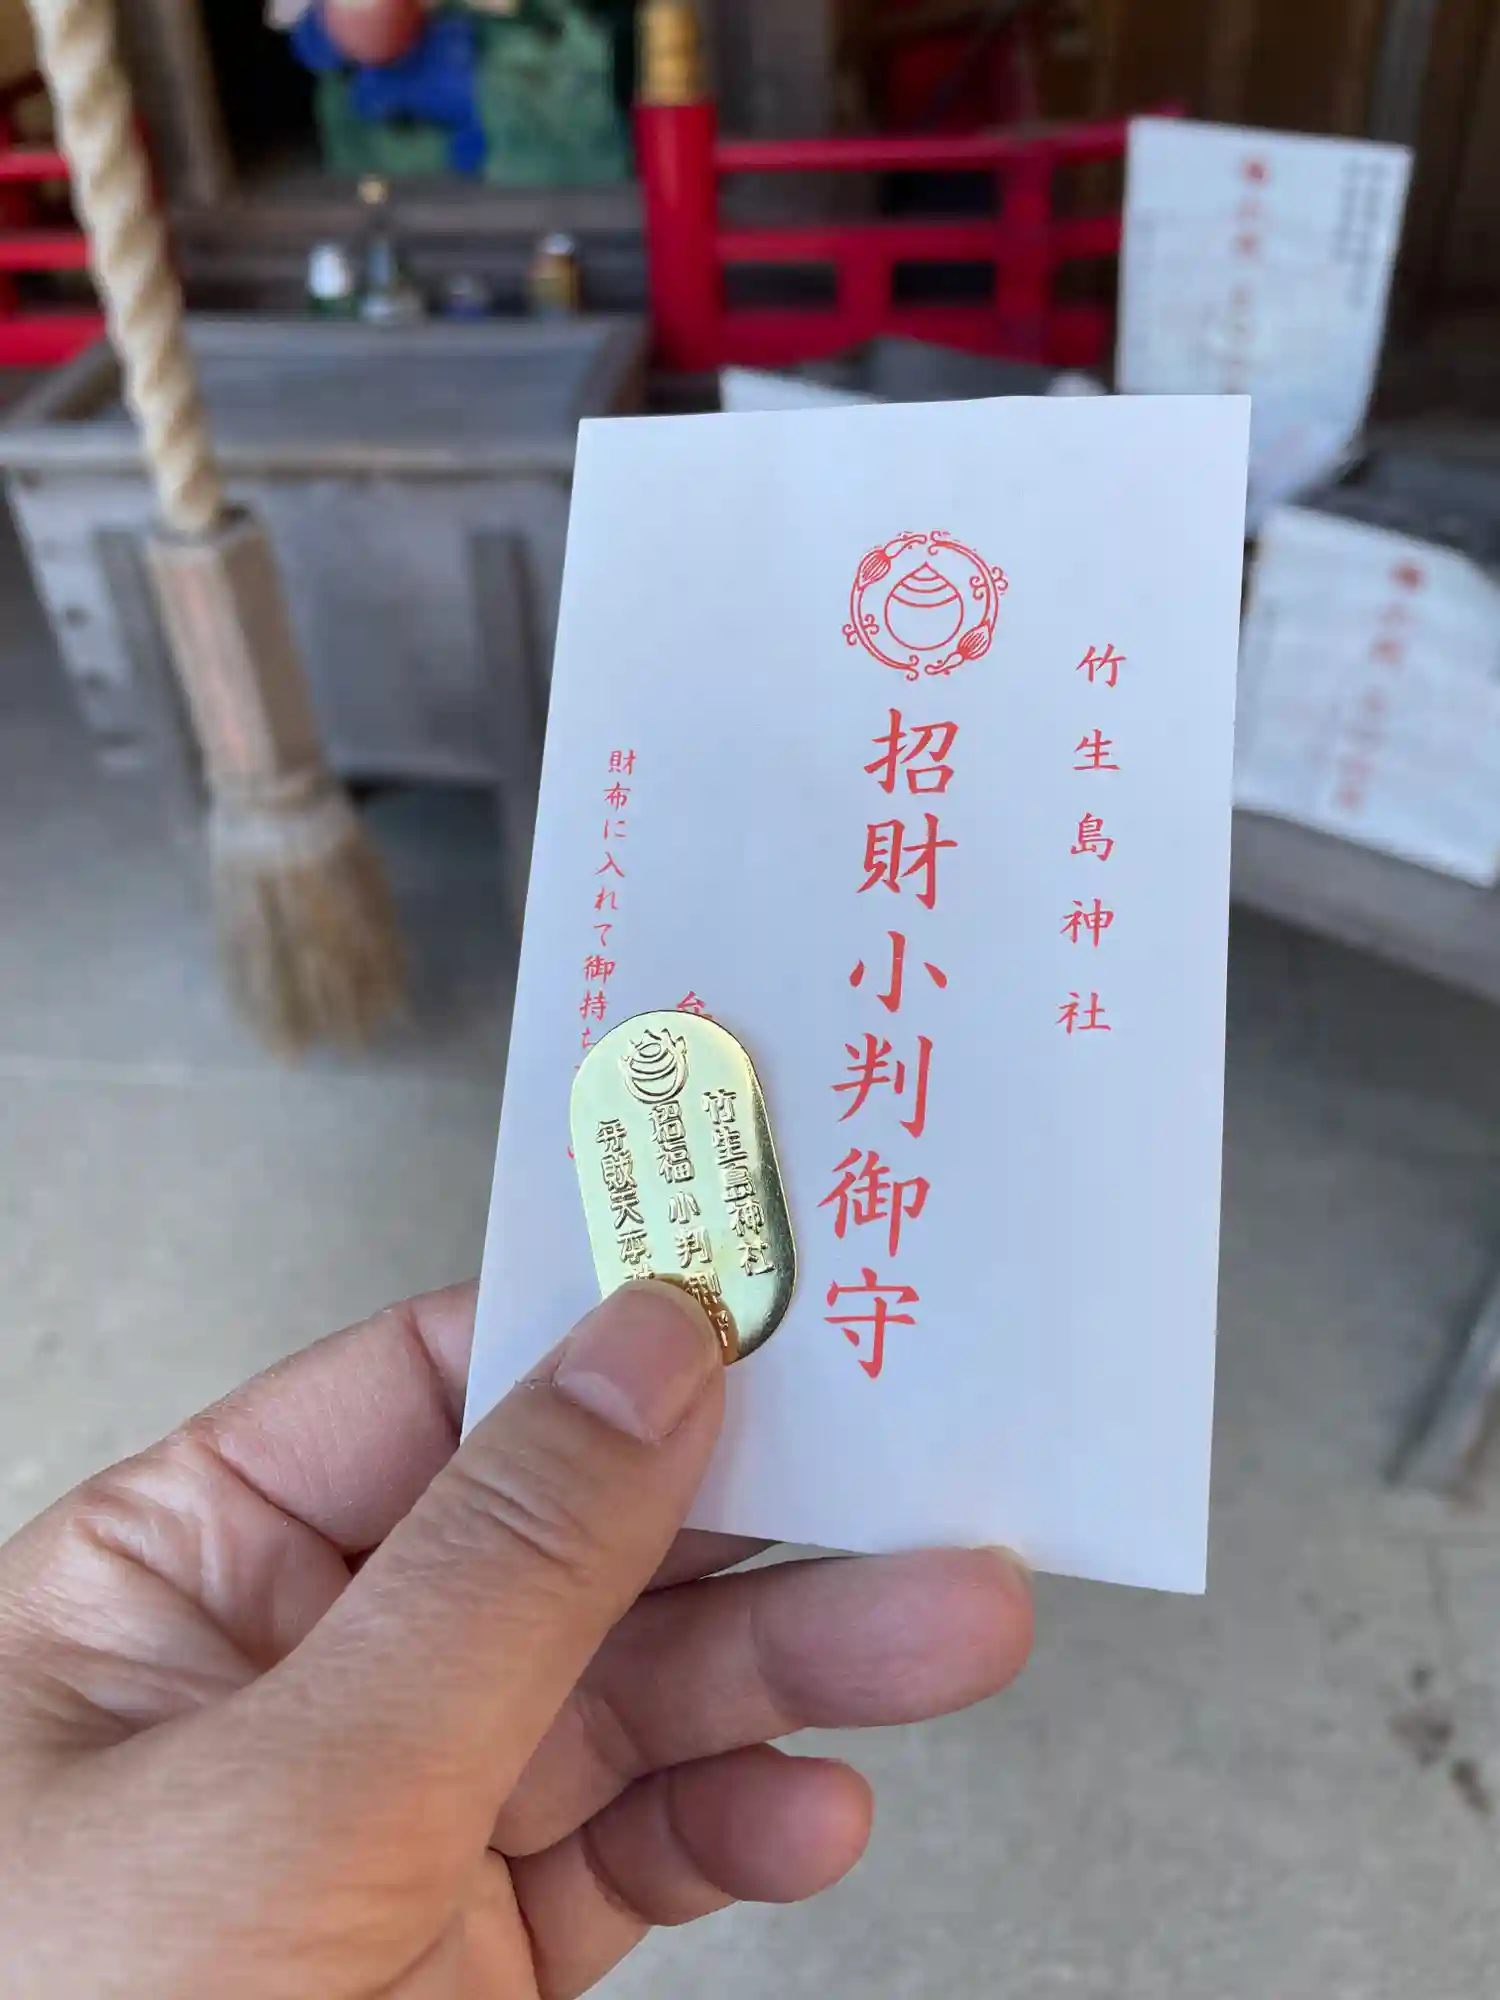 竹生島神社
招財小判御守
弁
財布に入れて御持ち
竹生島神社
招福小判御守
弁財天本社